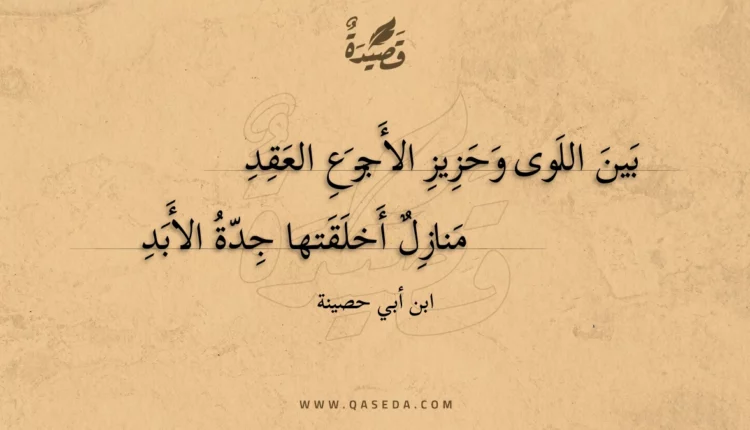 قَصِيْدَةٌ
بَينَ اللَوى وَحَزِيزِ الأَجرَعِ العَقِدِ
مَنازِلٌ أَخلَقَتها جِدّةُ الأَبَدِ
ابن أبي حصينة
WWW.QASEDA.COM